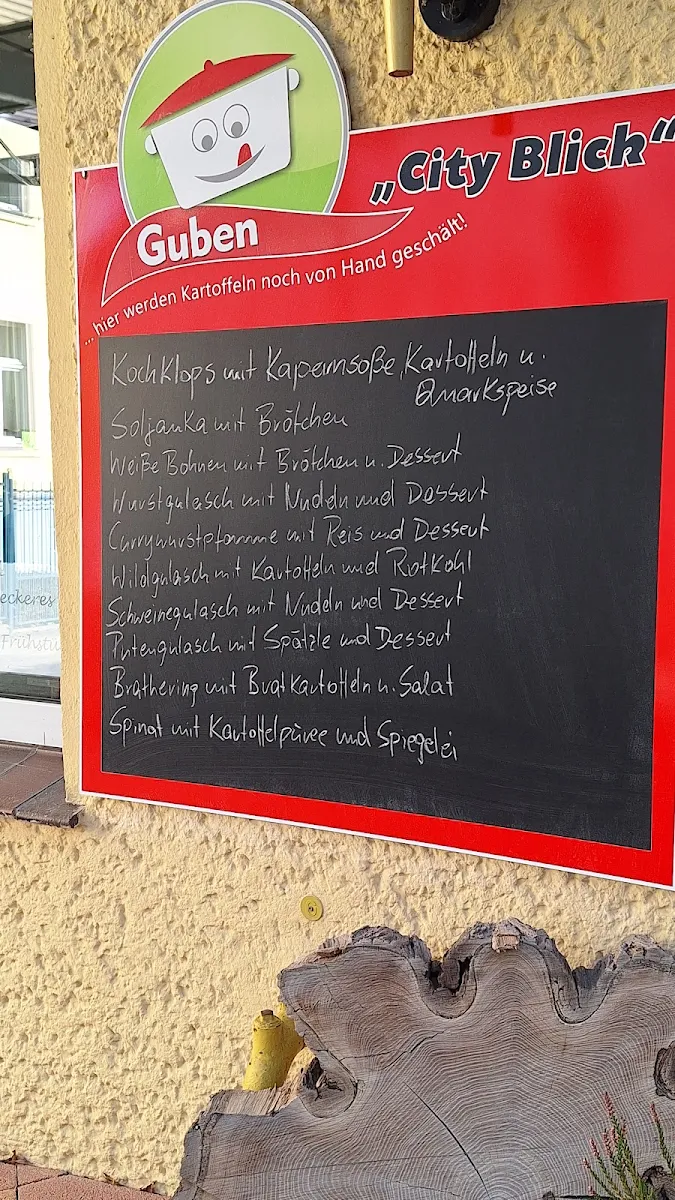 „City Blick“
Guben
... hier werden Kartoffeln noch von Hand geschält!
KochKlops mit Kapernsoße, Kartoffeln u.
Quarkspeise
Soljanka mit Brötchen
Weiße Bohnen mit Brötchen u. Dessert
Wurstgulasch mit Nudeln und Dessert
Currywurstpfanne mit Reis und Dessert
Wildgulasch mit Kartoffeln und Rotkohl
Schweinegulasch mit Nudeln und Dessert
Putengulasch mit Spätzle und Dessert
Brathering mit Bratkartoffeln u. Salat
Spinat mit Kartoffelpüree und Spiegelei
eckeres
Frühstü